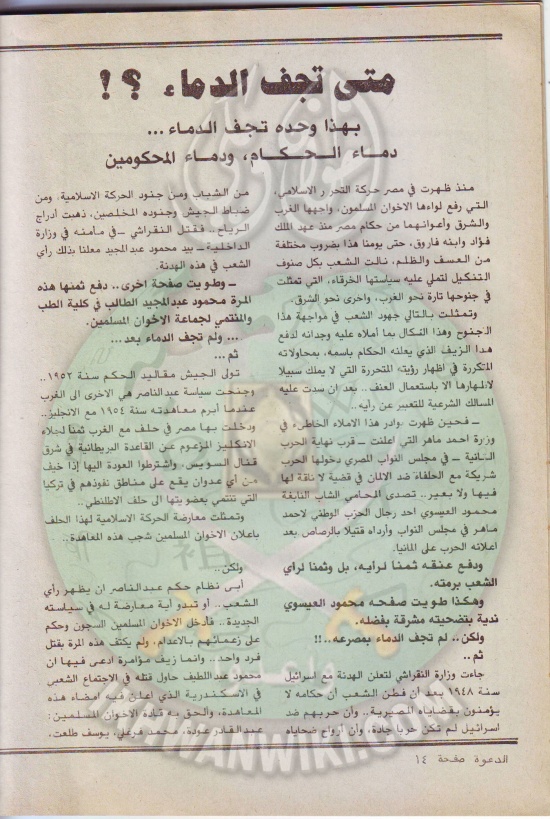 متى تجف الدماء ؟!
بهذا وحده تجف الدماء ...
دماء الحكام، ودماء المحكومين
منذ ظهرت في مصر حركة التحرر الاسلامي،
التي رفع لواءها الاخوان المسلمون، واجهها الغرب
والشرق وأعوانهما من حكام مصر منذ عهد الملك
فؤاد وابنه فاروق، حتى يومنا هذا بضروب مختلفة
من العسف والظلم، نالت الشعب بكل صنوف
التنكيل لتملي عليه سياستها الخرقاء، التي تمثلت
في جنوحها تارة نحو الغرب، واخرى نحو الشرق.
وتمثلت بالتالي جهود الشعب في مواجهة هذا
الجنوح وهذا النكال بما أملاه عليه وجدانه لدفع
هذا الزيف الذي يعلنه الحكام باسمه، بمحاولاته
المتكررة في اظهار رؤيته المتحررة التي لا يملك سبيلا
لاظهارها الا باستعمال العنف .. بعد ان سدت عليه
المسالك الشرعية للتعبير عن رأيه..
ــ فحين ظهرت بوادر هذا الاملاء الخاطىء في
وزارة احمد ماهر التي اعلنت ــ قرب نهاية الحرب
الثانية ــ في مجلس النواب المصري دخولها الحرب
شريكة مع الحلفاء ضد الالمان في قضية لا ناقة لها
فيها ولا بعير.. تصدى المحامي الشاب النابغة
محمود العيسوي احد رجال الحزب الوطني لاحمد
ماهر في مجلس النواب وأرداه قتيلا بالرصاص بعد
اعلانه الحرب على المانيا.
ودفع عنقه ثمنا لرأيه، بل وثمنا لرأي
الشعب برمته.
وهكذا طويت صفحه محمود العيسوي
ندية بتضحيته مشرقة بفضله.
ولكن.. لم تجف الدماء بمصرعه..!!
ثم ..
جاءت وزارة النقراشي لتعلن الهدنة مع اسرائيل
سنة ١٩٤٨ بعد ان فطن الشعب أن حكامه لا
يؤمنون بقضاياه المصيرية.. وأن حربهم ضد
اسرائيل لم تكن حربا جادة، وأن أرواح ضحاياه
من الشباب ومن جنود الحركة الاسلامية، ومن
ضباط الجيش وجنوده المخلصين، ذهبت أدراج
الرياح.. فقتل النقراشي ــ في مأمنه في وزارة
الداخلية ــ بيد محمود عبدالمجيد معلنا بذلك رأي
الشعب في هذه الهدنة.
ــ وطويت صفحة اخرى.. دفع ثمنها هذه
المرة محمود عبدالمجيد الطالب في كلية الطب
والمنتمي لجماعة الاخوان المسلمين.
... ولم تجف الدماء بعد...
ثم ...
تولى الجيش مقاليد الحكم سنة ١٩٥٢..
وجنحت سياسة عبدالناصر هي الاخرى الى الغرب
عندما أبرم معاهدته سنة ١٩٥٤ مع الانجليز..
ودخلت بها مصر في حلف مع الغرب ثمنا لجلاء
الانكليز المزعوم عن القاعدة البريطانية في شرق
قنال السويس، واشترطوا العودة اليها إذا خيف
من أي عدوان يقع على مناطق نفوذهم في تركيا
التي تنتمي بعضويتها الى حلف الاطلنطي..
وتمثلت معارضة الحركة الاسلامية لهذا الحلف
باعلان الاخوان المسلمين شجب هذه المعاهدة..
ولكن..
أبى نظام حكم عبدالناصر ان يظهر رأي
الشعب.. أو تبدو أية معارضة له في سياسته
الجديدة.. فأدخل الاخوان المسلمين السجون وحكم
على زعمائهم بالاعدام، ولم يكتف هذه المرة بقتل
فرد واحد.. وانما زيف مؤامرة ادعى فيها ان
محمود عبداللطيف حاول قتله في الاجتماع الشعبي
في الاسكندرية الذي اعلن فيه امضاء هذه
المعاهدة، والحق به قادة الاخوان المسلمين:
عبدالقادر عودة، محمد فرغلي، يوسف طلعت،
الدعوة صفحة ١٤
IKHWANWIKI.COM